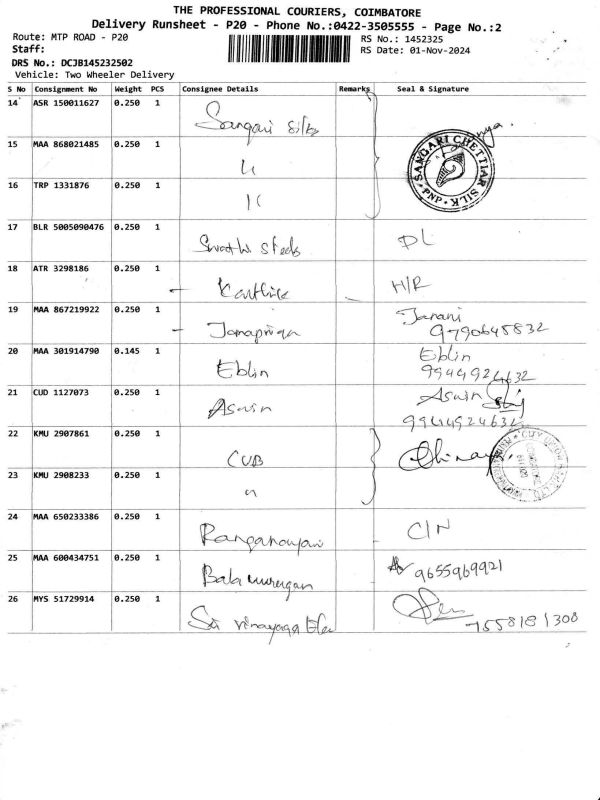 THE PROFESSIONAL COURIERS, COIMBATORE
Delivery Runsheet - P20 - Phone No.:0422-3505555 - Page No.:2
Route: MTP ROAD - P20 RS No.: 1452325
Staff: RS Date: 01-Nov-2024
DRS No.: DCJB145232502
Vehicle: Two Wheeler Delivery
S No Consignment No Weight PCS Consignee Details Remarks Seal & Signature
14 ASR 150011627 0.250 1 Sangari Silks
15 MAA 868021485 0.250 1 " SANGARI CHETTIAR SILK PNP
16 TRP 1331876 0.250 1 "
17 BLR 5005090476 0.250 1 Swathi Steels DL
18 ATR 3298186 0.250 1 Karthik H/R
19 MAA 867219922 0.250 1 Janapriya Janani
9790645832
20 MAA 301914790 0.145 1 Eblin Eblin
9944924632
21 CUD 1127073 0.250 1 Aswin Aswin
9944924632
22 KMU 2907861 0.250 1 CUB
23 KMU 2908233 0.250 1 "
24 MAA 650233386 0.250 1 Ranganayaki C/N
25 MAA 600434751 0.250 1 Balamurugan 9655969921
26 MYS 51729914 0.250 1 Sri vinayaga Ele
7558181308